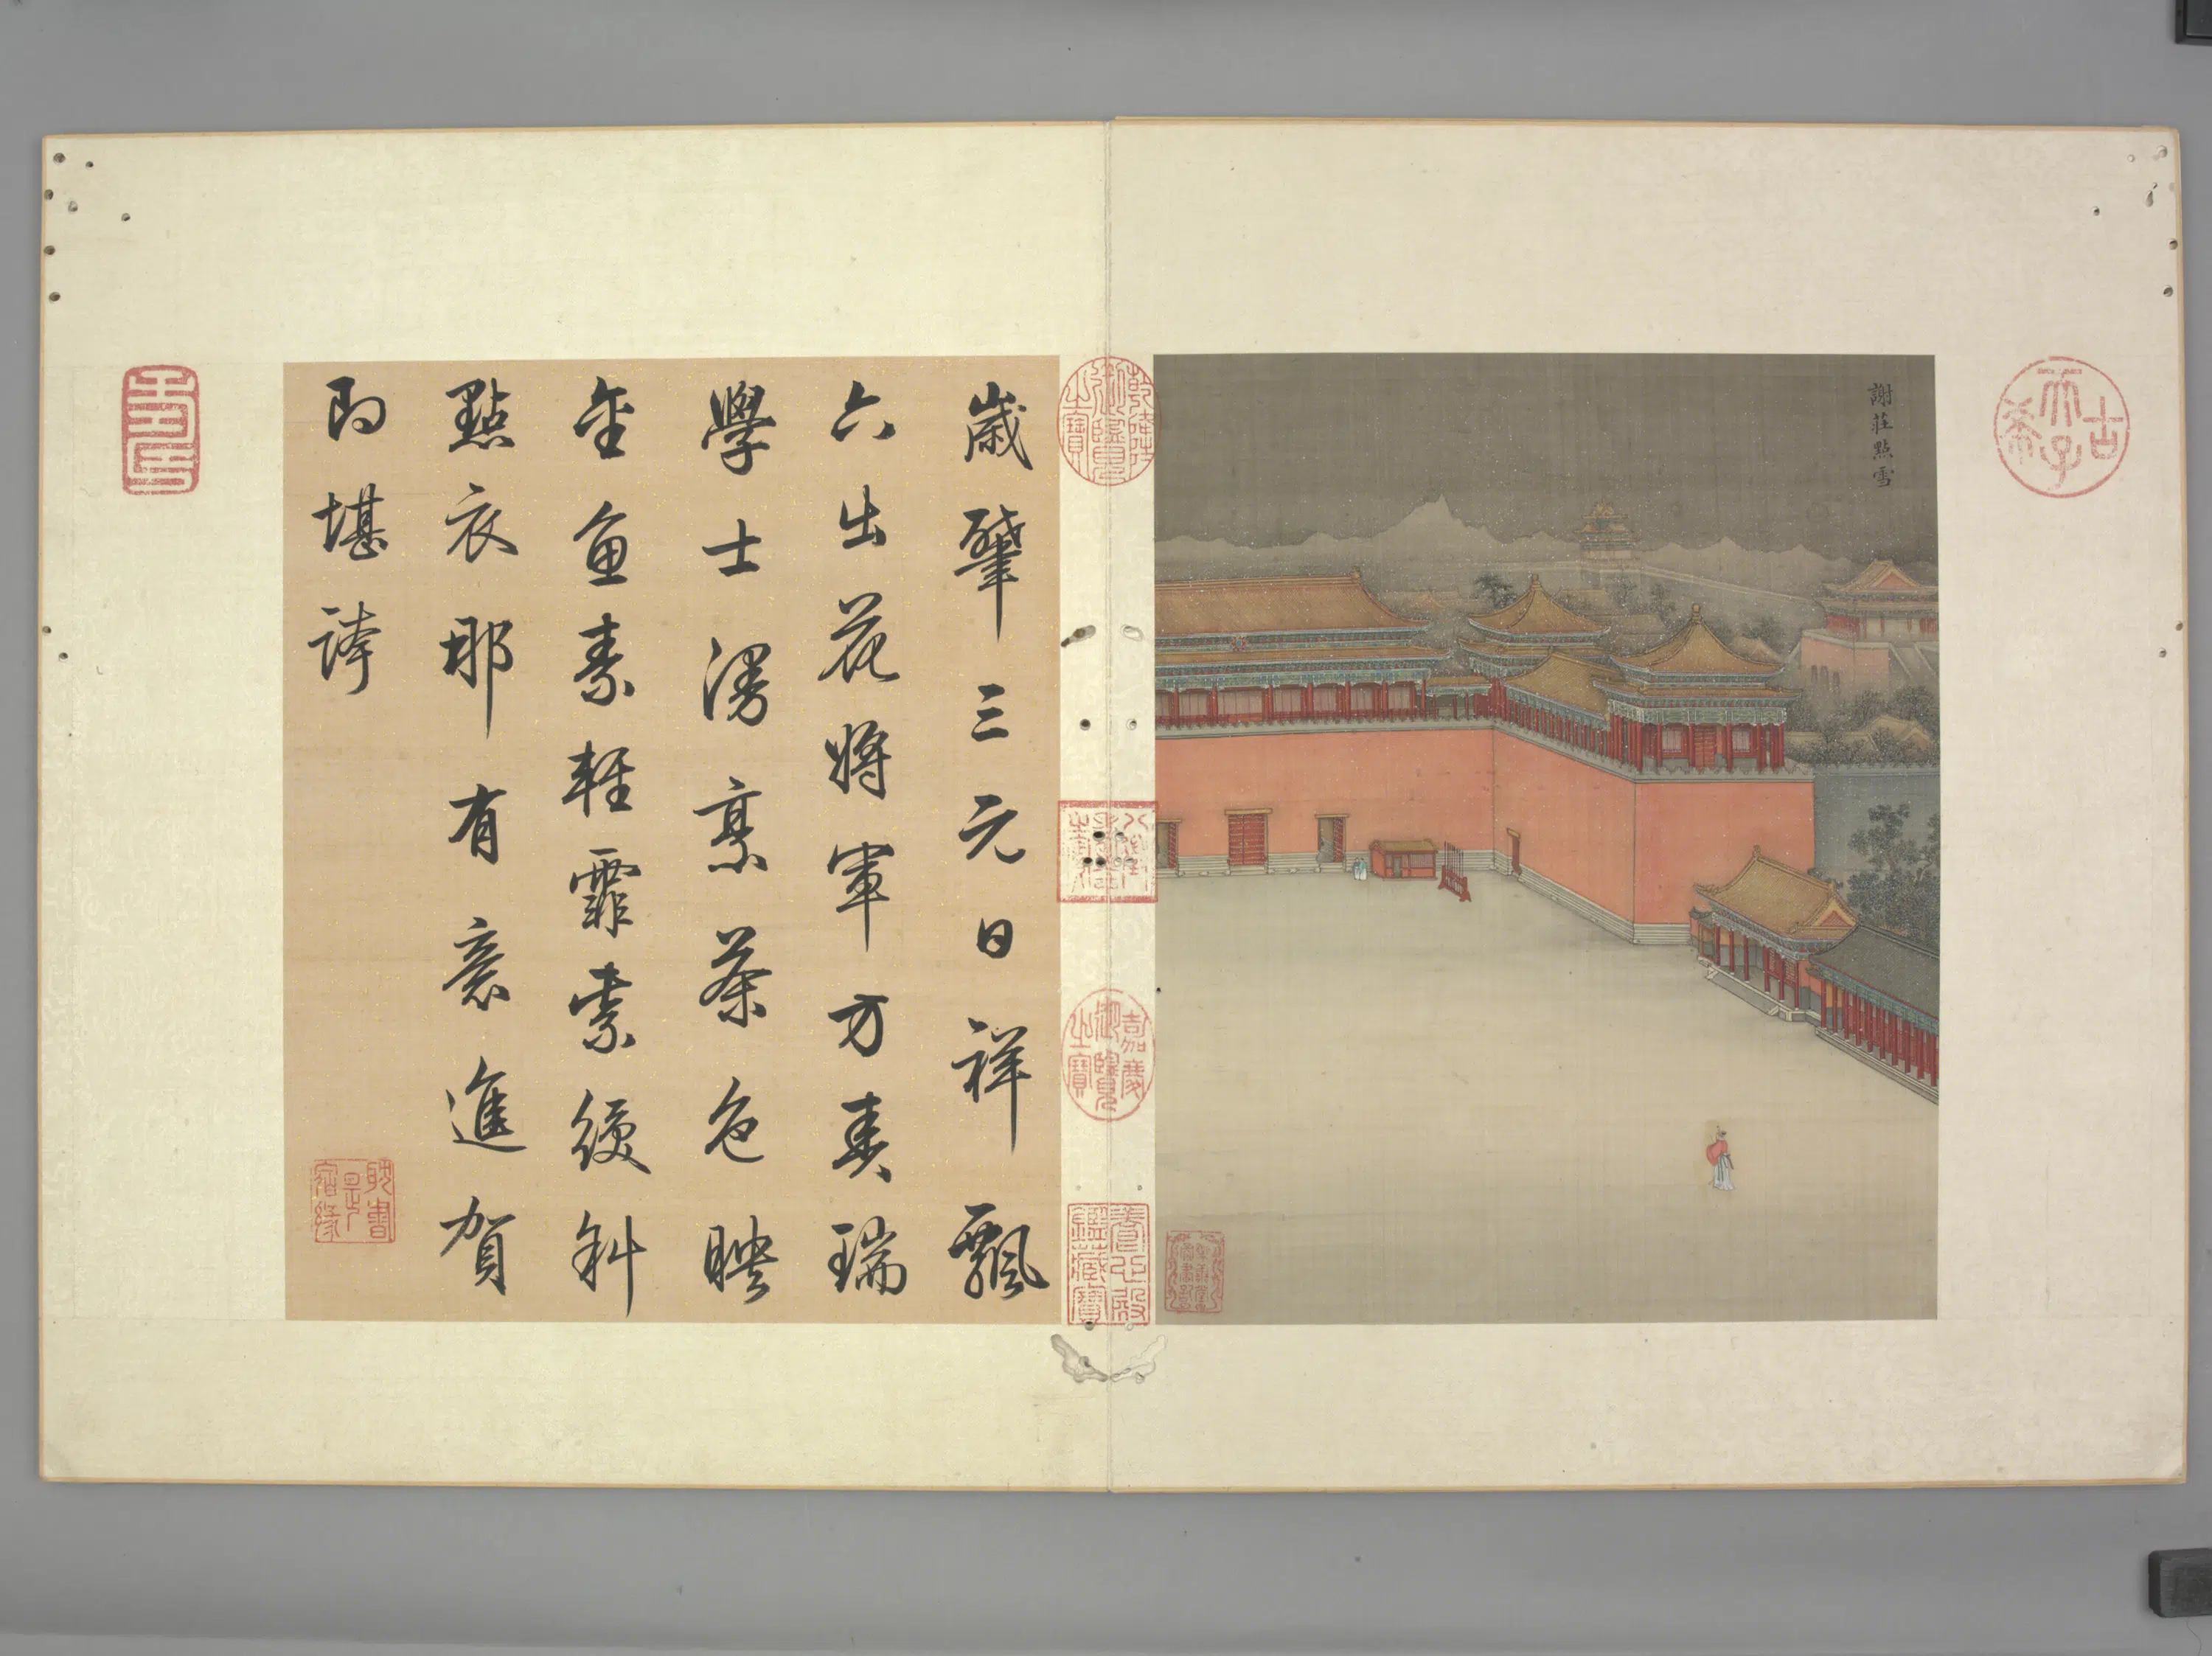 古希天子
謝莊點雪
乾隆御覽之寶
嘉慶御覽之寶
養心殿鑑藏寶
歲肈三元日祥飄
六出花將軍方奏瑞
學士漫烹茶色映
金魚素輕霏紫綬斜
點衣那有意進賀
即堪誇
耽書是宿緣
壽